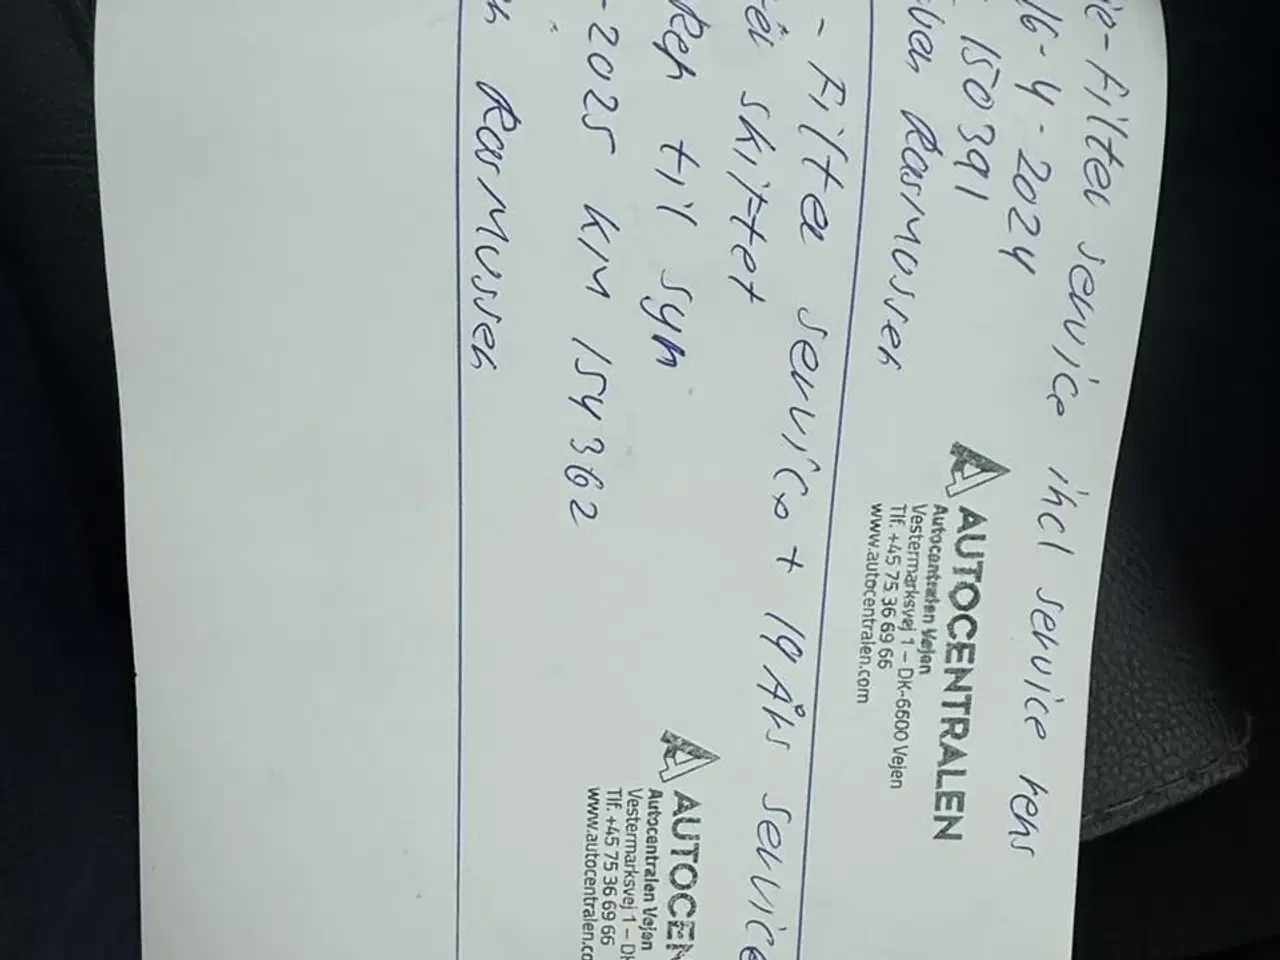 ie-Filter service incl service rens
16-4-2024
150391
Rasmussen
AUTOCENTRALEN
Autocentralen Vejen
Vestermarksvej 1 – DK-6600 Vejen
Tlf. +45 75 36 69 66
www.autocentralen.com
- Filter service + 19 Års service
skiftet
Rep til syn
-2025 KM 154362
Rasmussen
AUTOCEN
Autocentralen Vejen
Vestermarksvej 1 – D
Tlf. +45 75 36 69 66
www.autocentralen.co